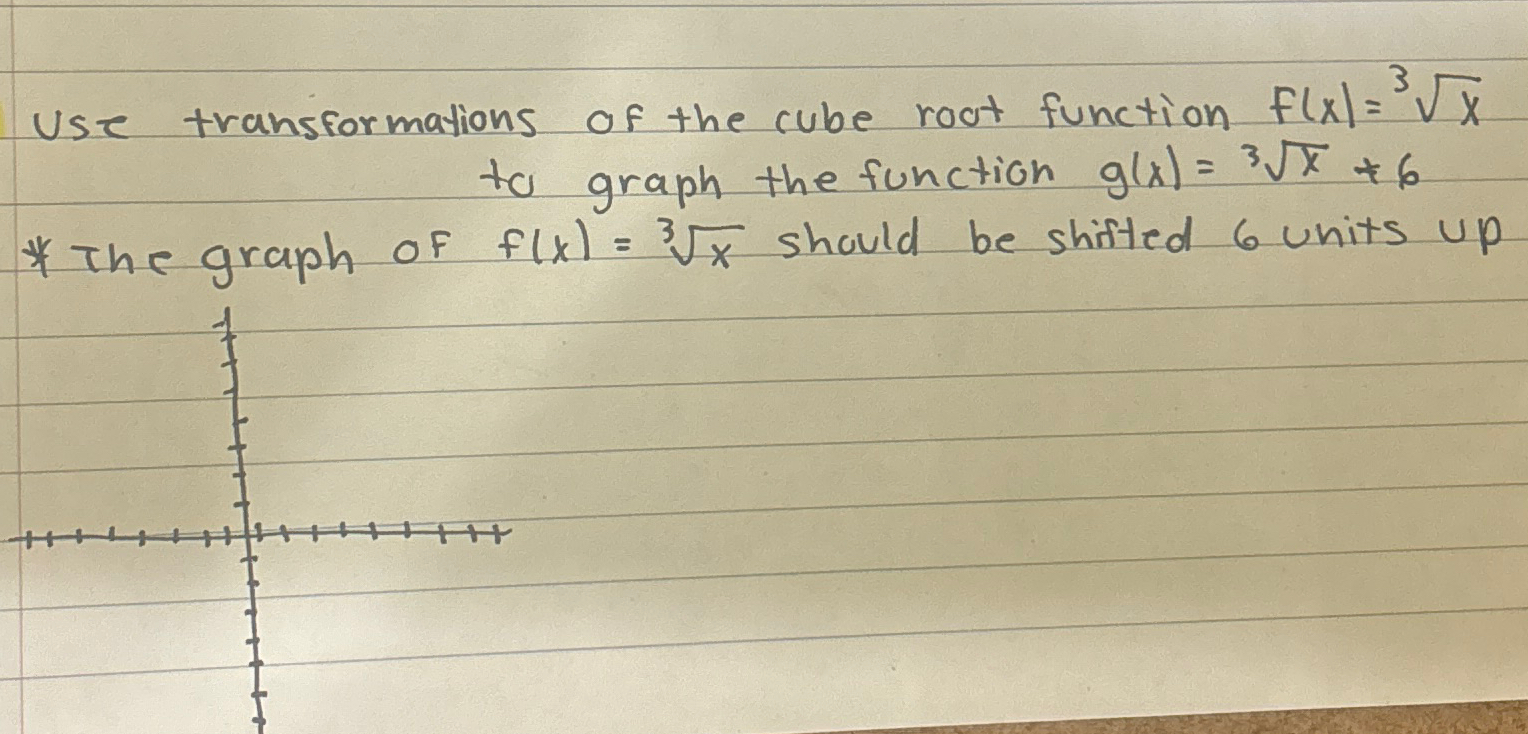 Use transformations of the cube root function f(x) = ³√x
to graph the function g(x) = ³√x + 6
* The graph of f(x) = ³√x should be shifted 6 units up